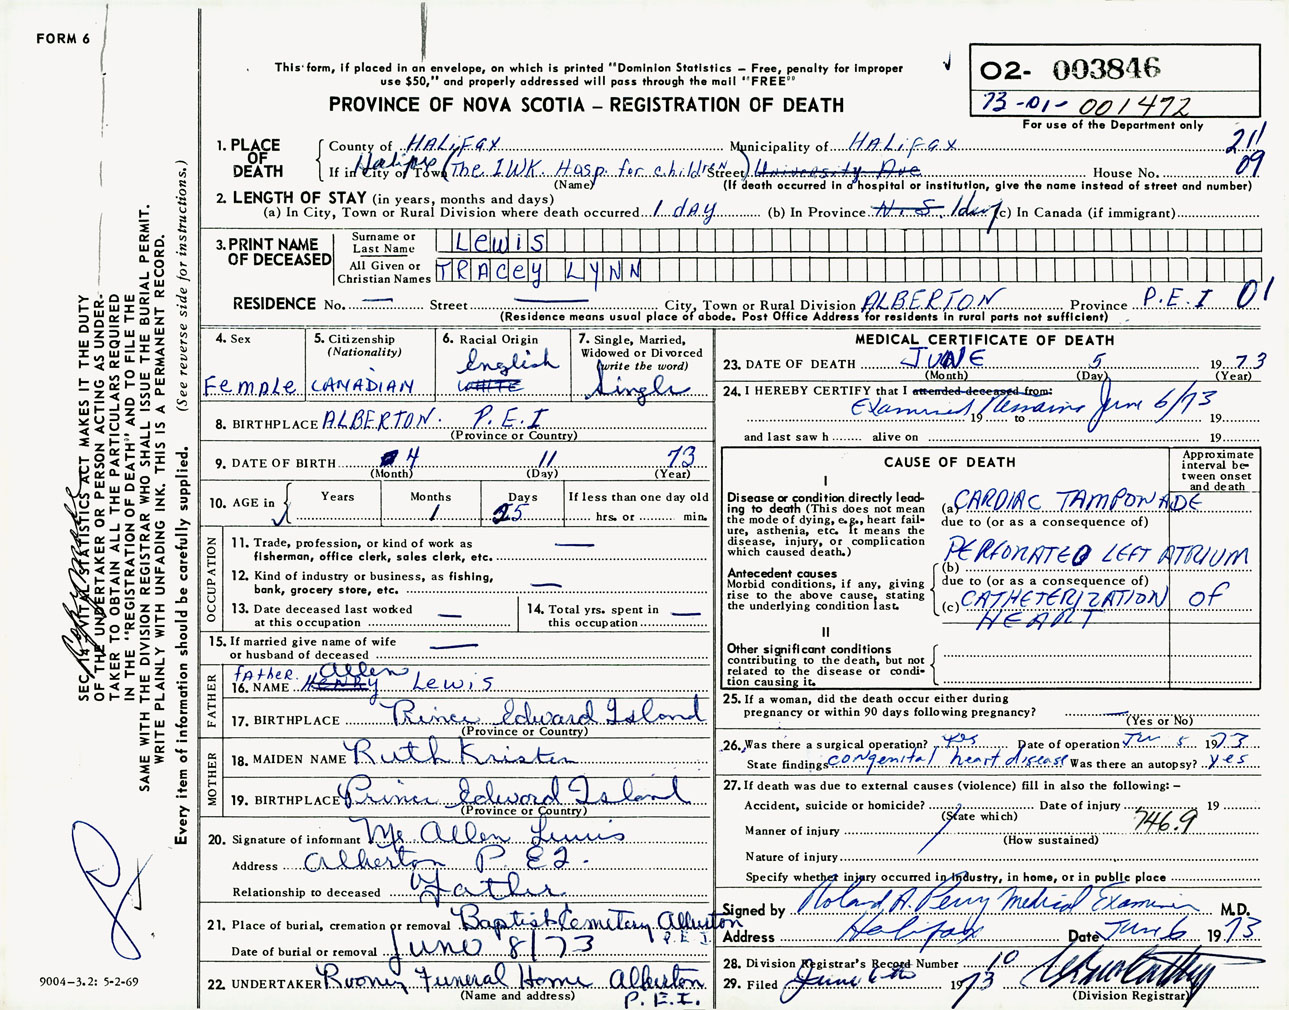 FORM 6
This form, if placed in an envelope, on which is printed "Dominion Statistics – Free, penalty for improper
use $50," and properly addressed will pass through the mail "FREE"
PROVINCE OF NOVA SCOTIA – REGISTRATION OF DEATH
O2- 003846
73-01- 001472
For use of the Department only
1. PLACE OF DEATH
County of HALIFAX Municipality of HALIFAX 211
Halifax
If in City or Town (The IWK Hosp. for children) Street University Ave House No. 09
(Name) (If death occurred in a hospital or institution, give the name instead of street and number)
2. LENGTH OF STAY (in years, months and days)
(a) In City, Town or Rural Division where death occurred 1 day (b) In Province N.S. 1 day (c) In Canada (if immigrant)
3. PRINT NAME OF DECEASED
Surname or Last Name Lewis
All Given or Christian Names TRACEY LYNN
RESIDENCE No. — Street — City, Town or Rural Division ALBERTON Province P.E.I 01
(Residence means usual place of abode. Post Office Address for residents in rural parts not sufficient)
4. Sex
Female
5. Citizenship
(Nationality)
CANADIAN
6. Racial Origin
English
WHITE
7. Single, Married,
Widowed or Divorced
(write the word)
Single
8. BIRTHPLACE ALBERTON. P.E.I
(Province or Country)
9. DATE OF BIRTH 4 11 73
(Month) (Day) (Year)
10. AGE in Years Months Days If less than one day old
1 25 hrs. or min.
OCCUPATION
11. Trade, profession, or kind of work as
fisherman, office clerk, sales clerk, etc. —
12. Kind of industry or business, as fishing,
bank, grocery store, etc. —
13. Date deceased last worked
at this occupation —
14. Total yrs. spent in
this occupation —
15. If married give name of wife
or husband of deceased —
FATHER
father. Allen
16. NAME HENRY Lewis
17. BIRTHPLACE Prince Edward Island
(Province or Country)
MOTHER
18. MAIDEN NAME Ruth Kristen
19. BIRTHPLACE Prince Edward Island
(Province or Country)
20. Signature of informant Mr Allen Lewis
Address Alberton P.E.I.
Relationship to deceased Father
21. Place of burial, cremation or removal Baptist Cemetary Alberton
P.E.I.
Date of burial or removal June 8/73
22. UNDERTAKER Rooney Funeral Home Alberton
(Name and address) P.E.I.
MEDICAL CERTIFICATE OF DEATH
23. DATE OF DEATH JUNE 5 1973
(Month) (Day) (Year)
24. I HEREBY CERTIFY that I attended deceased from:
Examined Remains June 6/73
19 to 19
and last saw h alive on 19
CAUSE OF DEATH
Approximate
interval be-
tween onset
and death
I
Disease or condition directly lead-
ing to death (This does not mean
the mode of dying, e.g., heart fail-
ure, asthenia, etc. It means the
disease, injury, or complication
which caused death.)
(a) CARDIAC TAMPONADE
due to (or as a consequence of)
Antecedent causes
Morbid conditions, if any, giving
rise to the above cause, stating
the underlying condition last.
(b) PERFORATED LEFT ATRIUM
due to (or as a consequence of)
(c) CATHETERIZATION OF
HEART
II
Other significant conditions
contributing to the death, but not
related to the disease or condi-
tion causing it.
25. If a woman, did the death occur either during
pregnancy or within 90 days following pregnancy? —
(Yes or No)
26. Was there a surgical operation? yes Date of operation Jun 5 1973
State findings congenital heart disease Was there an autopsy? yes
27. If death was due to external causes (violence) fill in also the following: –
Accident, suicide or homicide? Date of injury 19
(State which) 746.9
Manner of injury
(How sustained)
Nature of injury
Specify whether injury occurred in industry, in home, or in public place
Signed by Roland A. Perry Medical Examiner M.D.
Address Halifax Date June 6 1973
28. Division Registrar's Record Number 10
29. Filed June 6th 1973
(Division Registrar)
SEC. 14 VITAL STATISTICS ACT MAKES IT THE DUTY
OF THE UNDERTAKER OR PERSON ACTING AS UNDER-
TAKER TO OBTAIN ALL THE PARTICULARS REQUIRED
IN THE "REGISTRATION OF DEATH" AND TO FILE THE
SAME WITH THE DIVISION REGISTRAR WHO SHALL ISSUE THE BURIAL PERMIT.
WRITE PLAINLY WITH UNFADING INK. THIS IS A PERMANENT RECORD.
Every item of information should be carefully supplied. (See reverse side for instructions.)
9004–3.2: 5-2-69